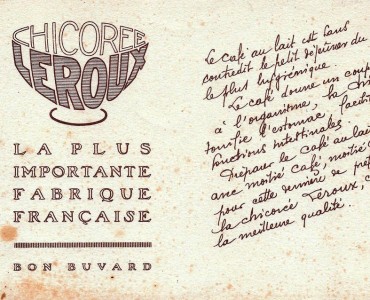 CHICORÉE
LEROUX
LA PLUS
IMPORTANTE
FABRIQUE
FRANÇAISE
BON BUVARD
Le café au lait est sans
contredit le petit déjeuner du
le plus hygiénique.
Le café donne un coup
à l'organisme, la
tonifie l'estomac, facilite
fonctions intestinales.
Préparer le café au lait
avec moitié café, moitié
pour cette dernière de
la chicorée Leroux,
la meilleure qualité.